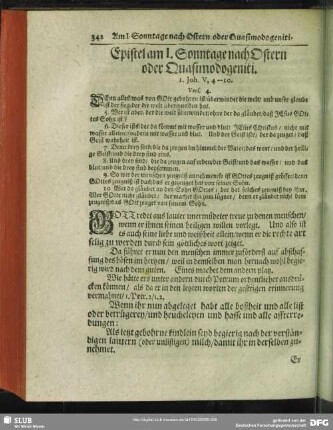 342 Am I. Sonntage nach Ostern oder Quasimodogeniti.
Epistel am I. Sonntage nach Ostern
oder Quasimodogeniti.
1. Joh. V, 4—10.
Vers. 4.
Denn alles was von GOtt gebohren ist
ist der sieg der die welt überwunden hat.
5. Wer ist aber, der die welt überwindet ohne der da gläubet, daß JEsus GOt-
tes Sohn ist?
6. Dieser ists der da kömmt mit wasser und blut JEsus Christus / nicht mit
wasser alleine sondern mit wasser und blut. Und der Geist ists, der da zeuget / daß
Geist warheit ist.
7. Denn drey sind die da zeugen im himmel, der Vater, das wort / und der heili-
ge Geist und die drey sind eins.
8. Und drey sind die da zeugen auf erden der Geist und das wasser / und das
blut und die drey sind beysammen.
9. So wir der menschen zeugniß annehmen so ist GOttes zeugniß grösser, denn
GOttes zeugniß ist das er gezeuget hat von seinem Sohn.
10. Wer da gläubet an den Sohn GOttes / der hat solches zeugniß bey ihm.
Wer GOtt nicht gläubet / der machet ihn zum lügner / denn er gläubet nicht dem
zeugniß das GOtt zeuget von seinem Sohn.
GOTT redet aus lauter unermüdeter treue zu denen menschen /
wenn er ihnen seinen heiligen willen vorlegt. Und also ist
es auch seine liebe und weisheit allein / wenn er die rechte art
selig zu werden durch sein göttliches wort zeiget.
Da führet er nun den menschen immer zuförderst auf abschaf-
fung des bösen im hertzen / weil in demselben man hernach wohl begie-
rig wird nach dem guten. Eines machet dem andern platz.
Wie hätte ers unter andern durch Petrum erdentlicher ausdrü-
cken können / als da er in den letzten worten der gestrigen erinnerung
vermahnet / 1. Petr. 2 / 1. 2.
Wenn ihr nun abgeleget habt alle boßheit und alle list
oder betrügerey / und heucheleyen und hasse und alle affterre-
dungen:
Als jetzt gebohrne kindlein seyd begierig nach der verstän-
digen lautern (oder unlistigen) milch / damit ihr in derselben zu-
nehmet.
Er
SLUB
Wir führen Wissen.
http://digital.slub-dresden.de/
gefördert von der
Deutschen Forschungsgemeinschaft
DFG